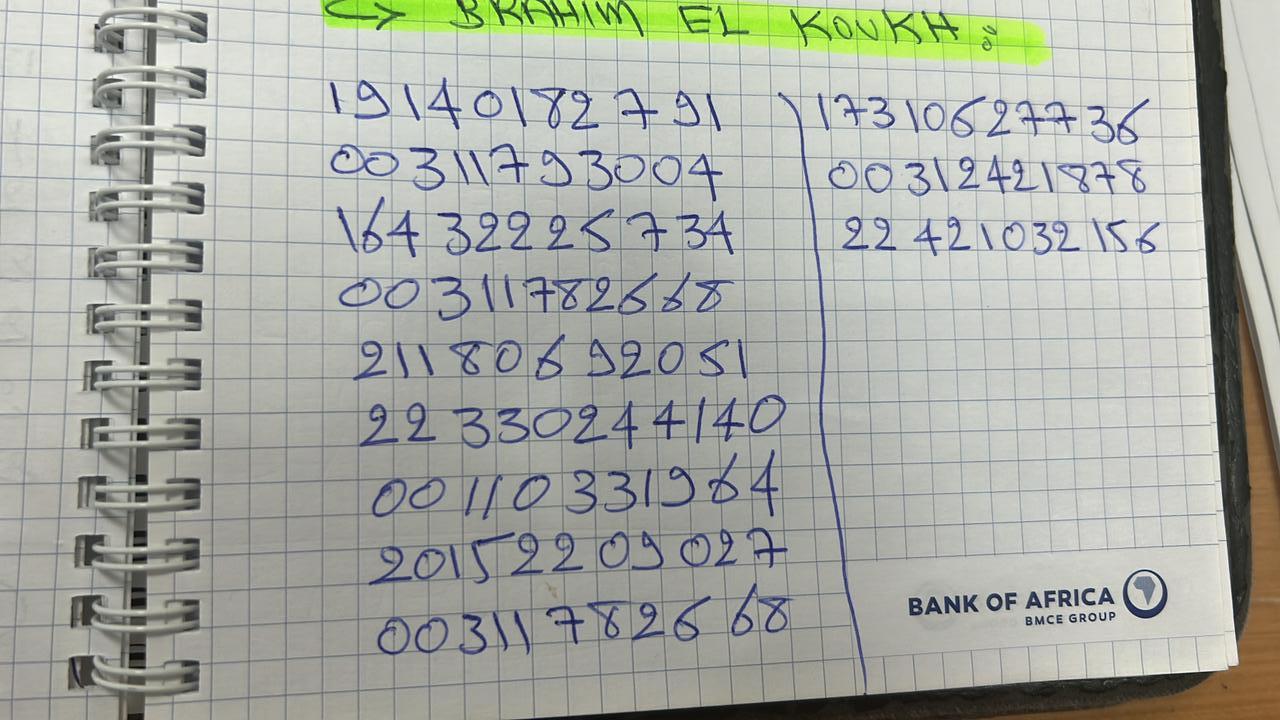 ↪ BRAHIM EL KOUKH :
191401827 91
00311793004
164 32225734
00311782668
211806 92051
22 330244140
00110331964
20152209027
00311782668
17310627736
00312421878
22 421032156
BANK OF AFRICA
BMCE GROUP